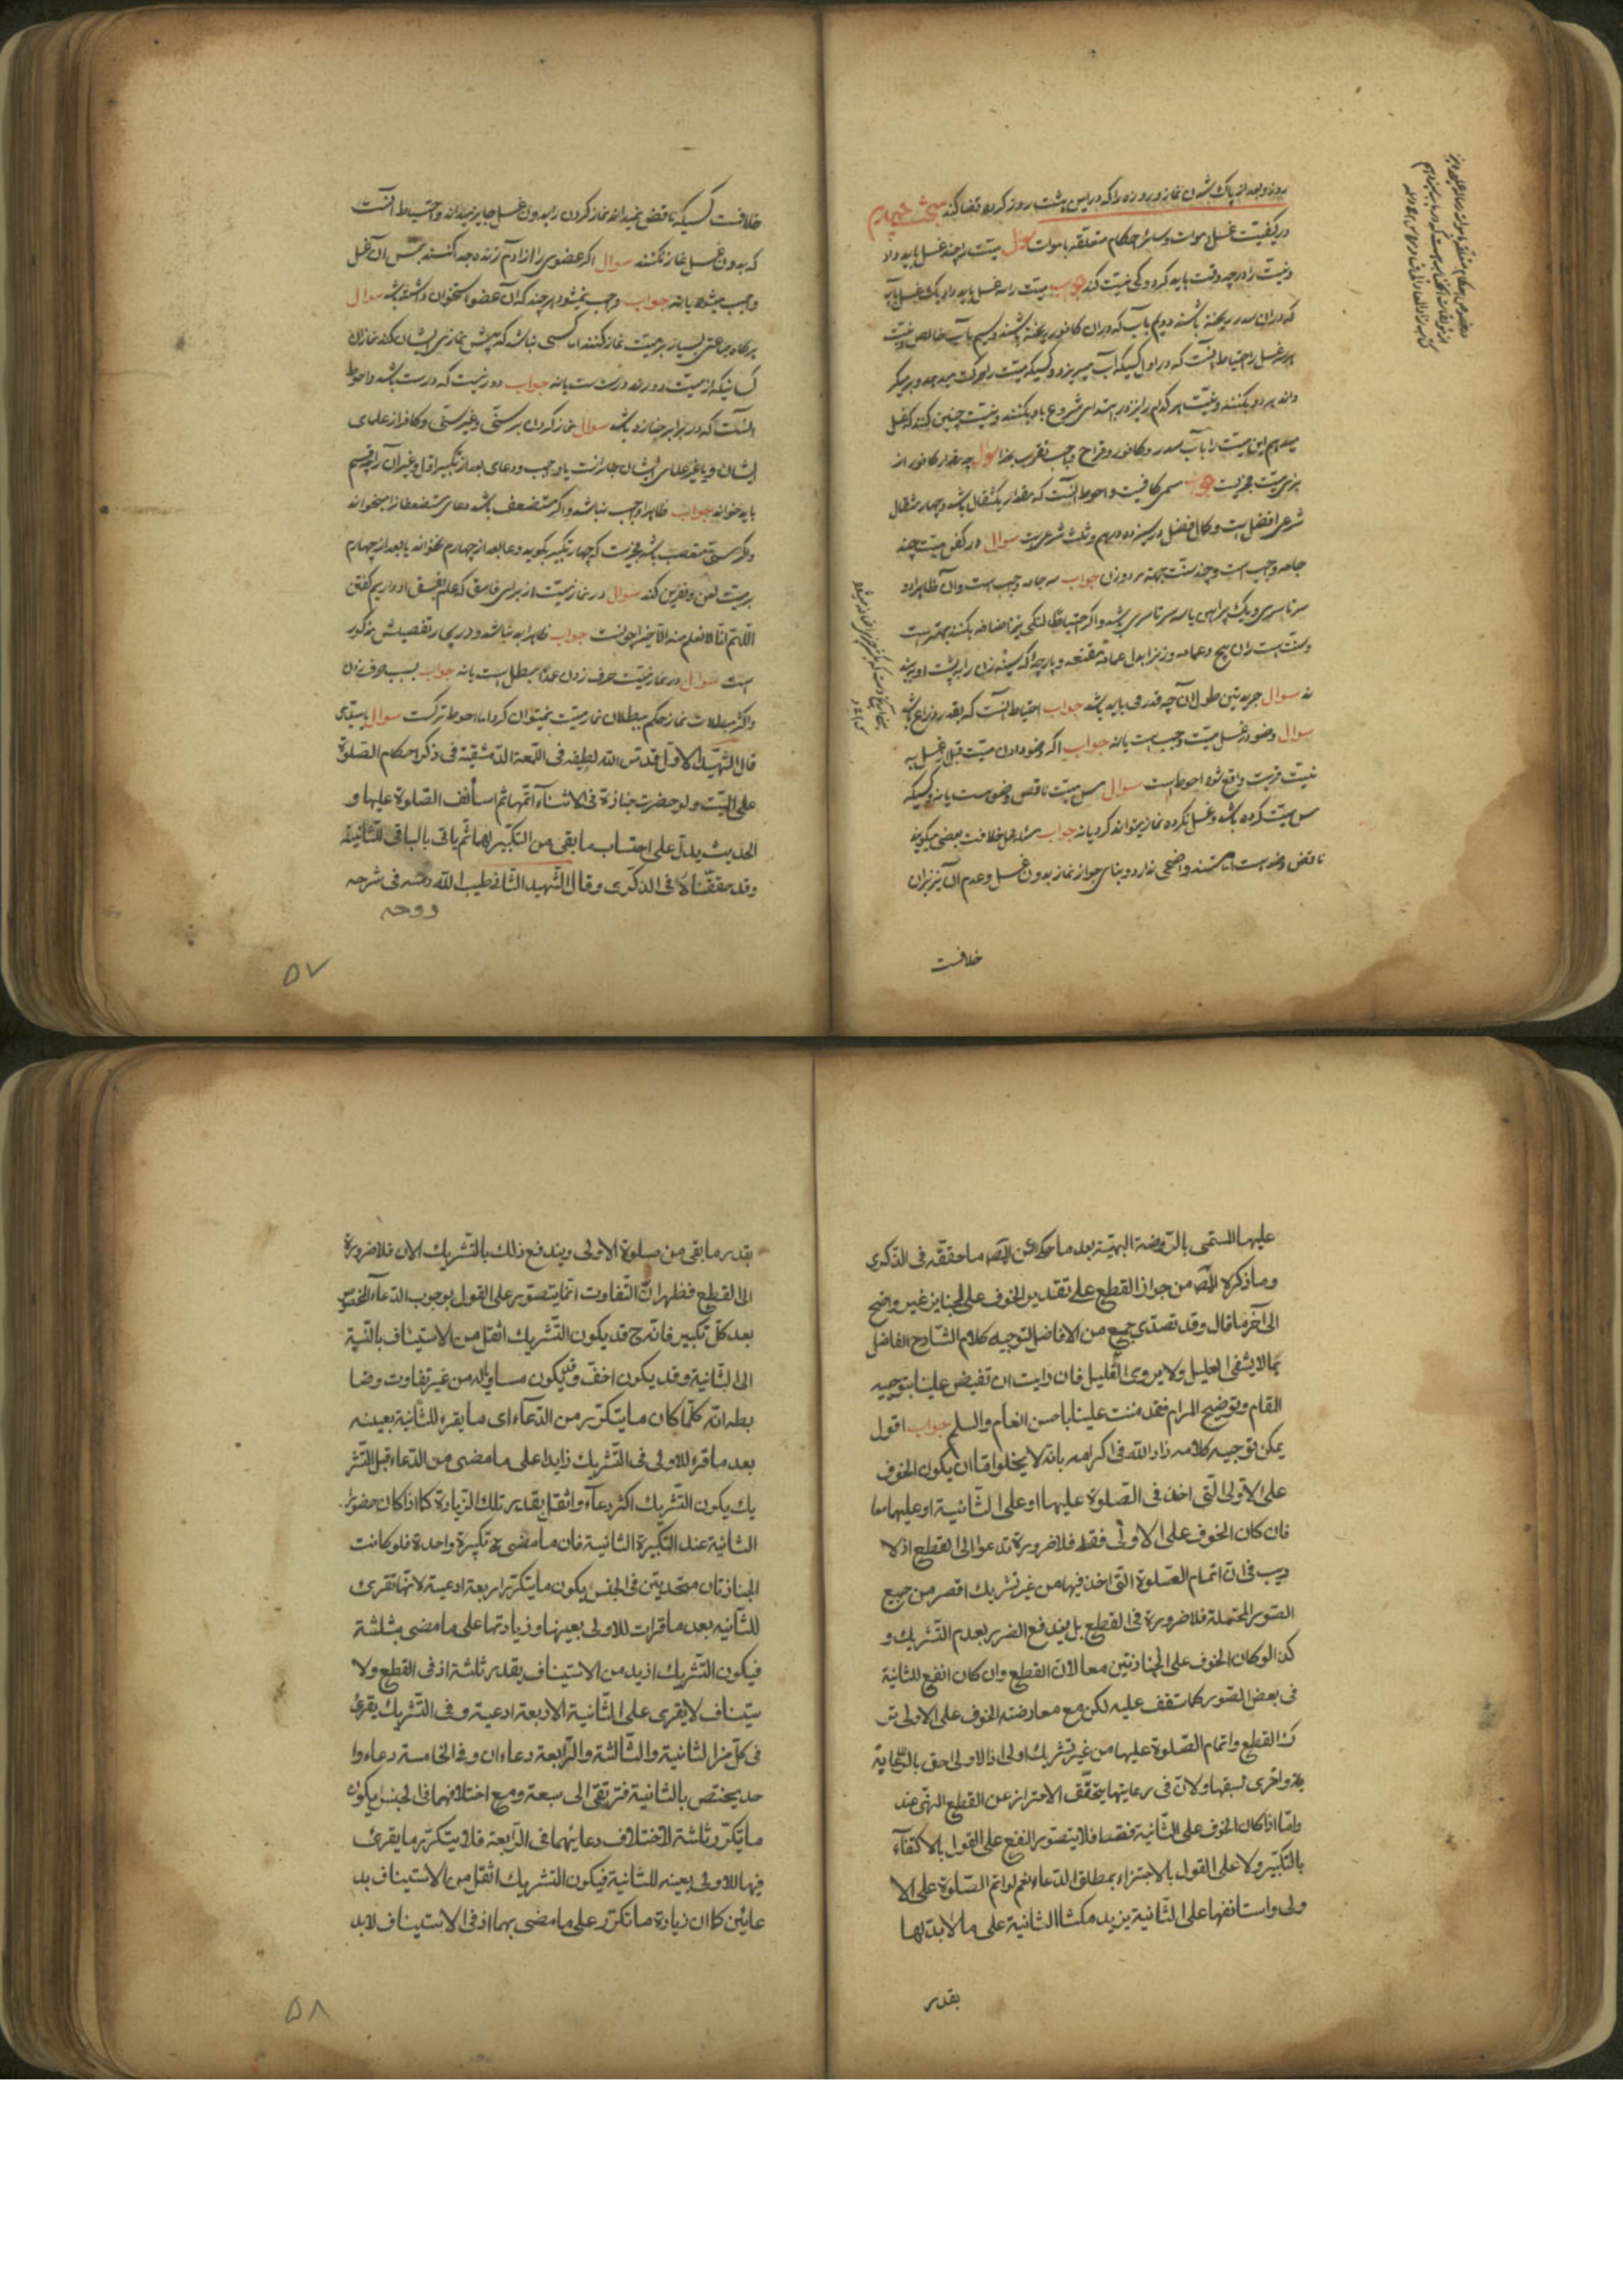 روز و بعد از پاک شدن نماز و روزه را که در این هشت روز کرده قضا کند مبحث چهارم
در کیفیت غسل اموات و سایر احکام متعلقه باموات سوال میت را چند غسل باید داد
و نیت را در چه وقت باید کرد و کی نیت کند جواب میت را سه غسل باید داد یک غسل بآب
که در ان سدر ریخته باشند دویم بآب که در ان کافور ریخته باشند سیم بآب خالص و نیت
هر غسل را احتیاط آنست که در اول کسیکه آب میریزد و کسیکه میت را حرکت میدهد و بر میگر
داند هر دو بکنند و نیت هر کدام را نزد ابتدای شروع باو بکنند و نیت چنین کنند که غسل
میدهم این میت را بآب سدر و کافور و قراح واجب تقرب بخدا سوال چه مقدار کافور از
برای میت مجزیست جواب مسمی کافیست و احوط آنست که مقدار یکمثقال باشد و چهار مثقال
شرعی افضل است و کمال فضل در سیزده درهم و ثلث شرعیست سوال در کفن میت چند
جامه واجب است و چند سنت جهة مرد و زن جواب سه جامه واجب است و آن ظاهرا دو
سرتاسری و یک پیراهن یا سه سرتاسری باشد و اگر احتیاطا لنگی نیز اضافه بکنند بهتر است
و سنت است ران پیچ و عمامه و زنرا بدل عمامه مقنعه و پارچه که سینه زن را به پشت او ببند
ند سوال جریدتین طول آن چه قدر می باید باشد جواب احتیاط آنست که بقدر ذراع باشد
سوال وضو در غسل میت واجب است یا نه جواب اگر وضو دادن میت قبل از غسل به
نیت قربت واقع شود احوط است سوال مس میت ناقص وضوست یا نه و کسیکه
مس میت کرده باشد و غسل نکرده نماز میتواند کرد یا نه جواب مسئله محل خلافست بعضی میگویند
ناقض وضو است اما مستند واضحی ندارد و بنای جواز نماز بدون غسل و عدم آن نیز بر ان
خلافست
خلافست کسیکه ناقض نمیداند نماز کردن را بدون غسل جایز میداند و احتیاط آنست
که بدون غسل نماز نکنند سوال اگر عضوی را از ادم زنده جدا کنند بمس آن غسل
واجب میشود یا نه جواب واجب نمیشود هر چند که آن عضو استخوان داشته باشد سوال
هر گاه جماعتی بسیار بر میت نماز کنند اما کسی نباشد که پیش نمازی ایشان کند نماز ان
کسانیکه از میت دورند درست است یا نه جواب دور نیست که درست باشد و احوط
آنست که در برابر جنازه باشد سوال نماز کردن بر سنی و غیر سنی و کافر از علمای
ایشان و یا غیر علمای ایشان جائز است یا واجب و دعای بعد از تکبیر اول و غیر آن را چه قسم
باید خواند جواب ظاهرا واجب نباشد و اگر مستضعف باشد دعای مستضعفانرا میخواند
و اگر سنی متعصب باشد مجزیست که چهار تکبیر بکوید و دعا بعد از چهارم نخواند یا بعد از چهارم
بر میت لعن و نفرین کند سوال در نماز میت از برای فاسق که علم بفسق او داریم کفتن
اللهم انا لا نعلم منه الا خیرا چونست جواب ظاهرا بد نباشد و در بحار تفصیلش مذکور
است سوال در نماز میت حرف زدن عمدا مبطل است یا نه جواب بسبب حرف زدن
و اکثر مبطلات نماز حکم ببطلان نماز میت نمیتوان کرد اما احوط ترکست سوال یا سیدی
قال الشهید الاول قدس الله لطیفه فی اللمعة الدمشقیة فی ذکر احکام الصلوة
علی المیت ولو حضرت جنازة فی الاثناء اتمها ثم استأنف الصلوة علیها و
الحدیث یدل علی احتساب ما بقی من التکبیر لهما ثم یاتی بالباقی للثانیة
وقد حققناه فی الذکری وقال الشهید الثانی طیب الله رمسه فی شرحه
روحه
۵۷
علیها المسمی بالروضة البهیة بعد ما حکی عن المص ما حققه فی الذکری
وما ذکره المص من جواز القطع علی تقدیر الخوف علی الجنایز غیر واضح
الی آخر ما قال وقد تصدی جمع من الافاضل لتوجیه کلام الشارح الفاضل
بما لا یشفی العلیل ولا یروی الغلیل فان رایت ان تفیض علینا بتوجیه
المقام وتوضیح المرام فقد مننت علینا باحسن انعام والسلم جواب اقول
یمکن توجیه کلامه زاد الله فی اکرامه بانه لا یخلو اما ان یکون الخوف
علی الاولی التی اخذ فی الصلوة علیها او علی الثانیة او علیهما معا
فان کان الخوف علی الاولی فقط فلا ضرورة تدعوا الی القطع اذ لا
ریب فی ان اتمام الصلوة التی اخذ فیها من غیر تشریک اقصر من جمیع
الصور المحتملة فلا ضرورة فی القطع بل یندفع الضرر بعدم التشریک و
کذا لو کان الخوف علی الجنازتین معا لان القطع وان کان انفع للثانیة
فی بعض الصور کما ستقف علیه لکن مع معارضته الخوف علی الاولی تر
ک القطع واتمام الصلوة علیها من غیر تشریک اولی اذ الاولی احق بالرعایة
واحری لسبقها ولان فی رعایتها یتحقق الاحتراز عن القطع المنهی عنه
واما اذا کان الخوف علی الثانیة فقط فلا یتصور النفع علی القول بالاکتفآء
بالتکبیر ولا علی القول بالاجتزاء بمطلق الدعاء نعم لو اتم الصلوة علی الا
ولی واستانفها علی الثانیة یزید مکث الثانیة علی ما لا بد لها
بقدر
بقدر ما بقی من صلوة الاولی ویندفع ذلک بالتشریک الان فلا ضرورة
الی القطع فظهر ان التفاوت انما یتصور علی القول بوجوب الدعآء المخصوص
بعد کل تکبیر فانه ح قد یکون التشریک اثقل من الاستیناف بالنسبة
الی الثانیة وقد یکون اخف وقد یکون مساویا له من غیر تفاوت وضا
بطه انه کلما کان ما یتکرر من الدعآء ای ما یقرء للثانیة بعینه
بعد ما قرء للاولی فی التشریک زایدا علی ما مضی من الدعاء قبل التشر
یک یکون التشریک اکثر دعآء واثقل بقدر تلک الزیادة کما اذا کان حضور
الثانیة عند التکبیرة الثانیة فان ما مضی ح تکبیرة واحدة فلو کانت
الجنازتان متحدتین فی الجنس یکون ما یتکرر اربعة ادعیة لانها تقرئ
للثانیه بعد ما قرات للاولی بعینها وزیادتها علی ما مضی بثلثة
فیکون التشریک ازید من الاستیناف بقدر ثلثة اذ فی القطع والا
ستیناف لا یقری علی الثانیة الا اربعة ادعیة وفی التشریک یقرئ
فی کل من الثانیة والثالثة والرابعة دعاءان وفی الخامسة دعاء وا
حد یختص بالثانیة فترتقی الی سبعة ومع اختلافهما فی الجنس یکون
ما یتکرر ثلثة لاختلاف دعائهما فی الرابعة فلا یتکرر ما یقرئ
فیها للاولی بعینه للثانیة فیکون التشریک اثقل من الاستیناف بد
عائین کما ان زیادة ما تکرر علی ما مضی بهما اذ فی الاستیناف لابد
۵۸